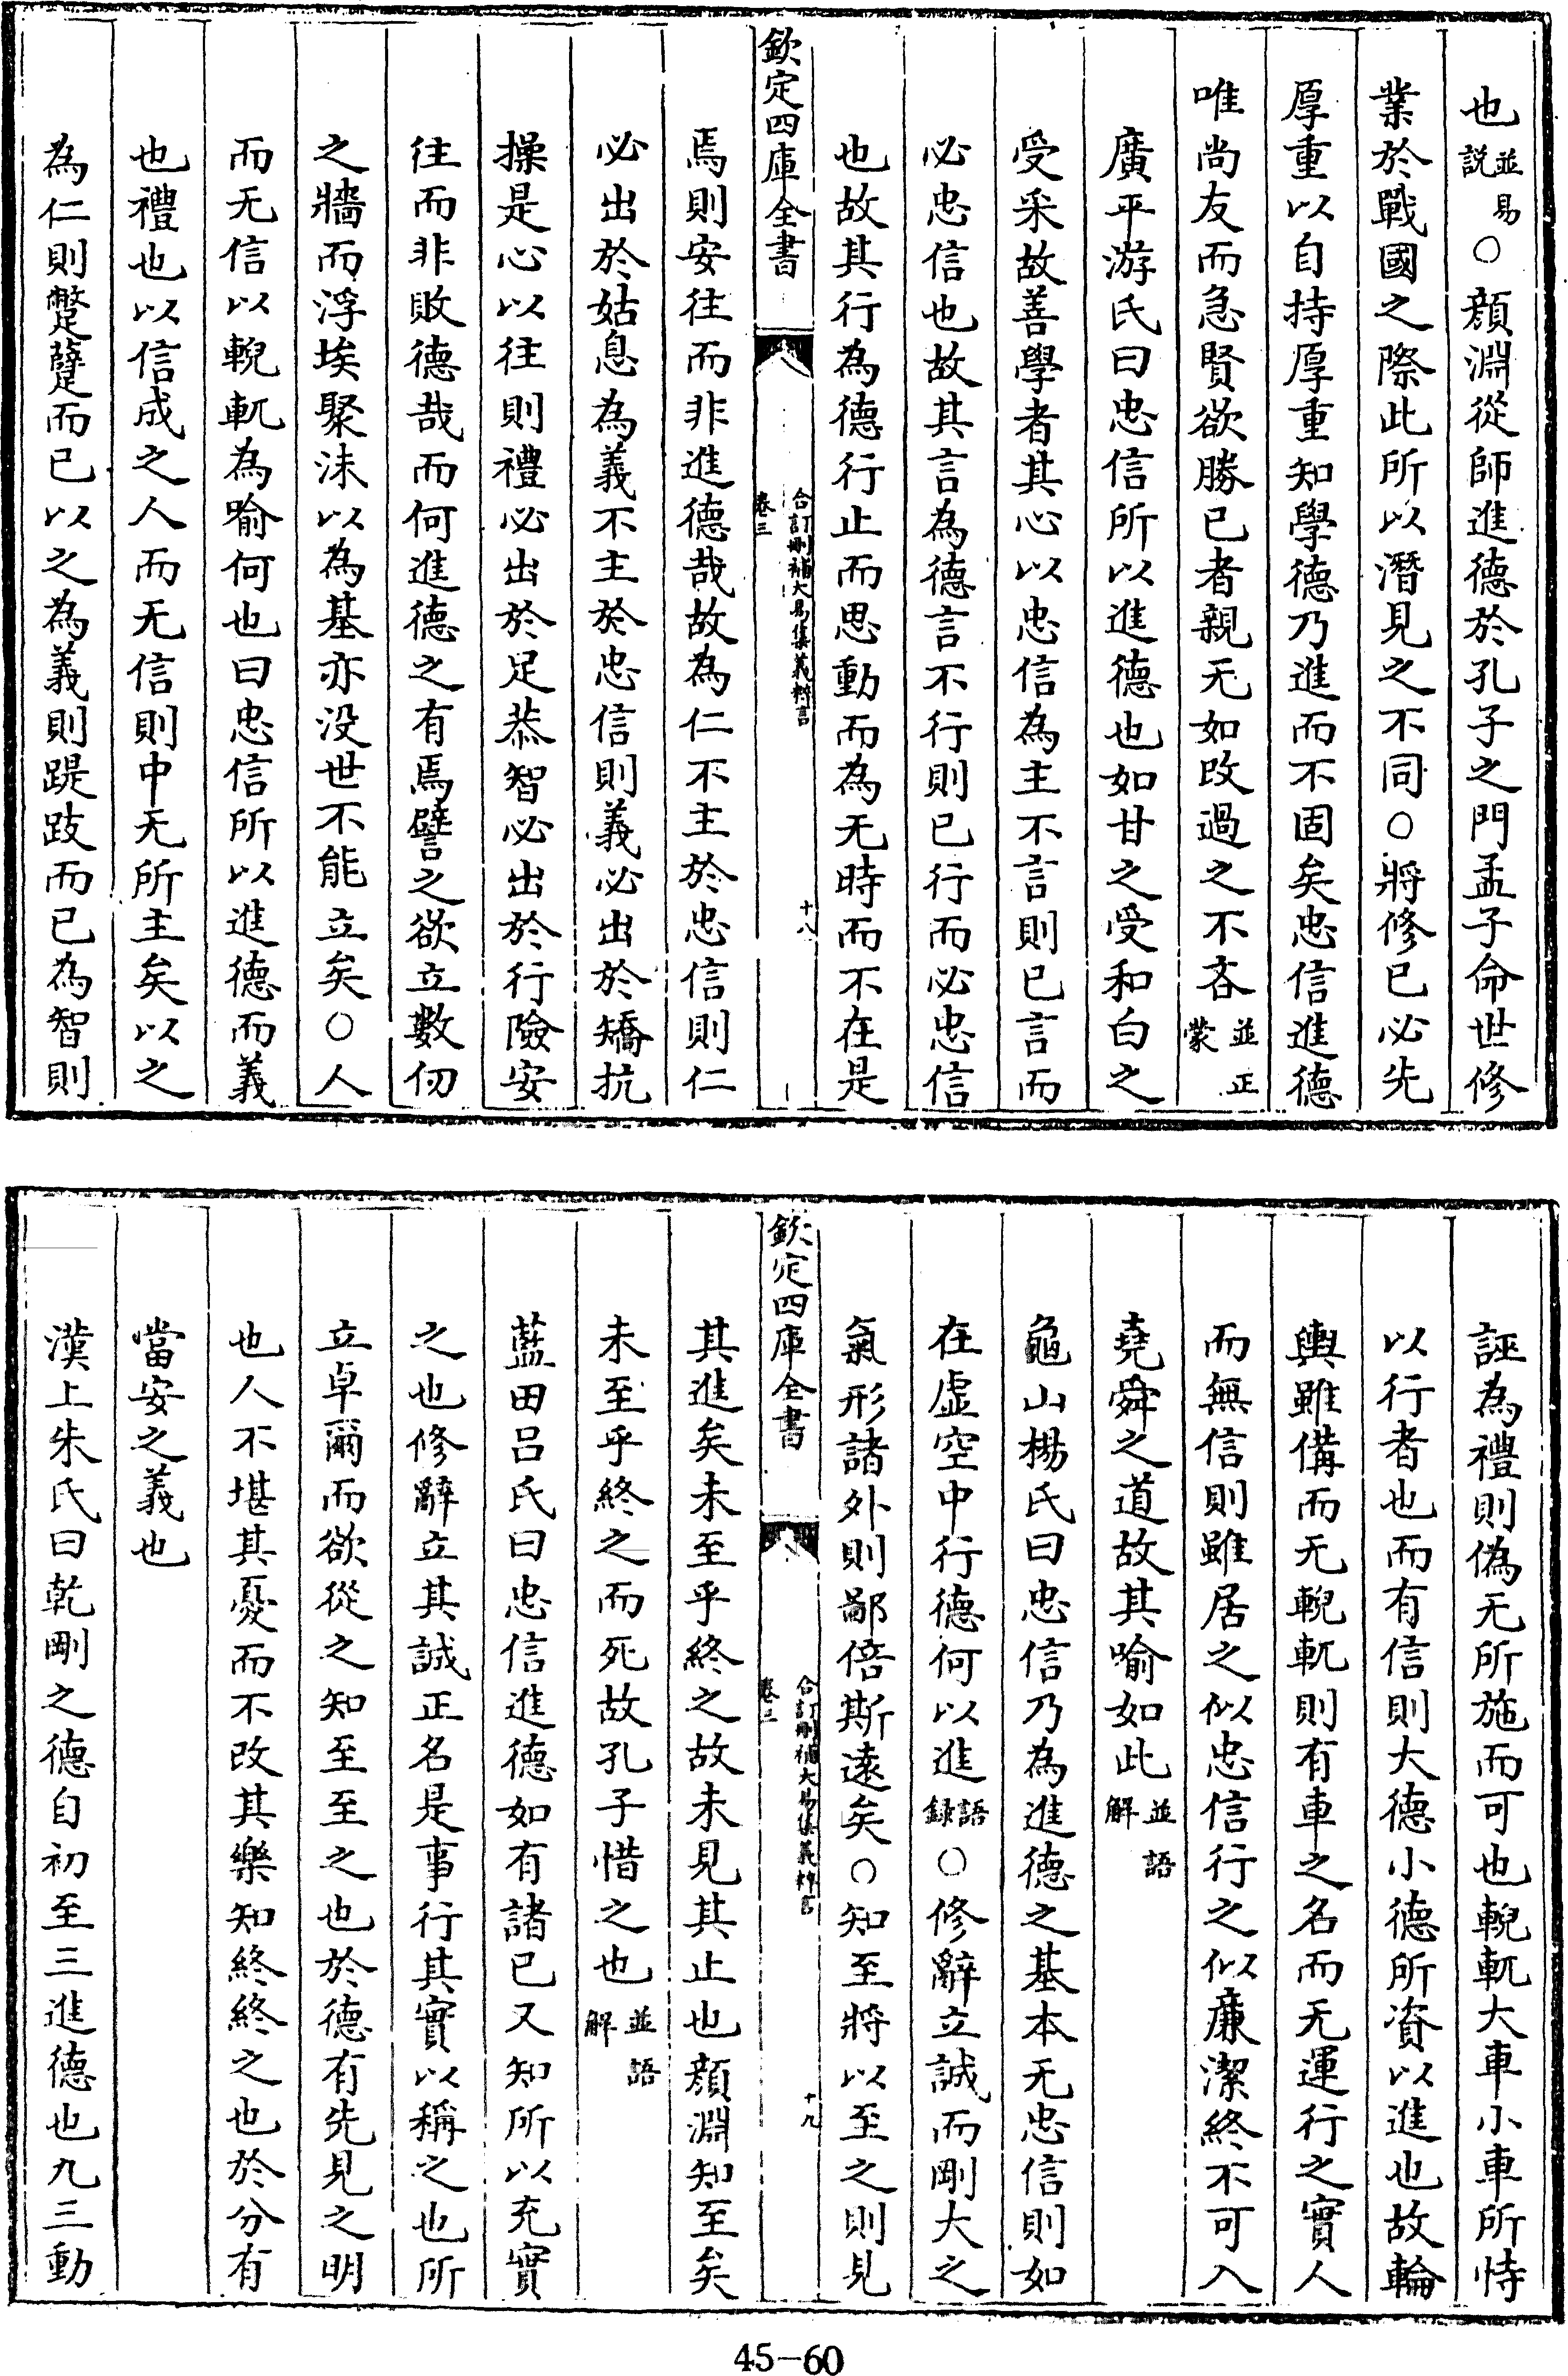 也並易說○顔淵從師進德於孔子之門孟子命世修
業於戰國之際此所以潛見之不同○將修已必先
厚重以自持厚重知學德乃進而不固矣忠信進德
唯尚友而急賢欲勝已者親无如改過之不吝並正蒙
廣平游氏曰忠信所以進德也如甘之受和白之
受采故善學者其心以忠信為主不言則已言而
必忠信也故其言為德言不行則已行而必忠信
也故其行為德行止而思動而為无時而不在是
欽定四庫全書
合訂刪補大易集義粹言
卷三
十八
焉則安往而非進德哉故為仁不主於忠信則仁
必出於姑息為義不主於忠信則義必出於矯抗
操是心以往則禮必出於足恭智必出於行險安
往而非敗德哉而何進德之有焉譬之欲立數仞
之牆而浮埃聚沫以為基亦没世不能立矣○人
而无信以輗軏為喻何也曰忠信所以進德而義
也禮也以信成之人而无信則中无所主矣以之
為仁則蹩躠而已以之為義則踶跂而已為智則
誣為禮則偽无所施而可也輗軏大車小車所恃
以行者也而有信則大德小德所資以進也故輪
輿雖備而无輗軏則有車之名而无運行之實人
而無信則雖居之似忠信行之似廉潔終不可入
堯舜之道故其喻如此並語解
龜山楊氏曰忠信乃為進德之基本无忠信則如
在虚空中行德何以進語録○修辭立誠而剛大之
氣形諸外則鄙倍斯遠矣○知至將以至之則見
欽定四庫全書
合訂刪補大易集義粹言
卷三
十九
其進矣未至乎終之故未見其止也顔淵知至矣
未至乎終之而死故孔子惜之也並語解
藍田吕氏曰忠信進德如有諸已又知所以充實
之也修辭立其誠正名是事行其實以稱之也所
立卓爾而欲從之知至至之也於德有先見之明
也人不堪其憂而不改其樂知終終之也於分有
當安之義也
漢上朱氏曰乾剛之德自初至三進德也九三動
45-60